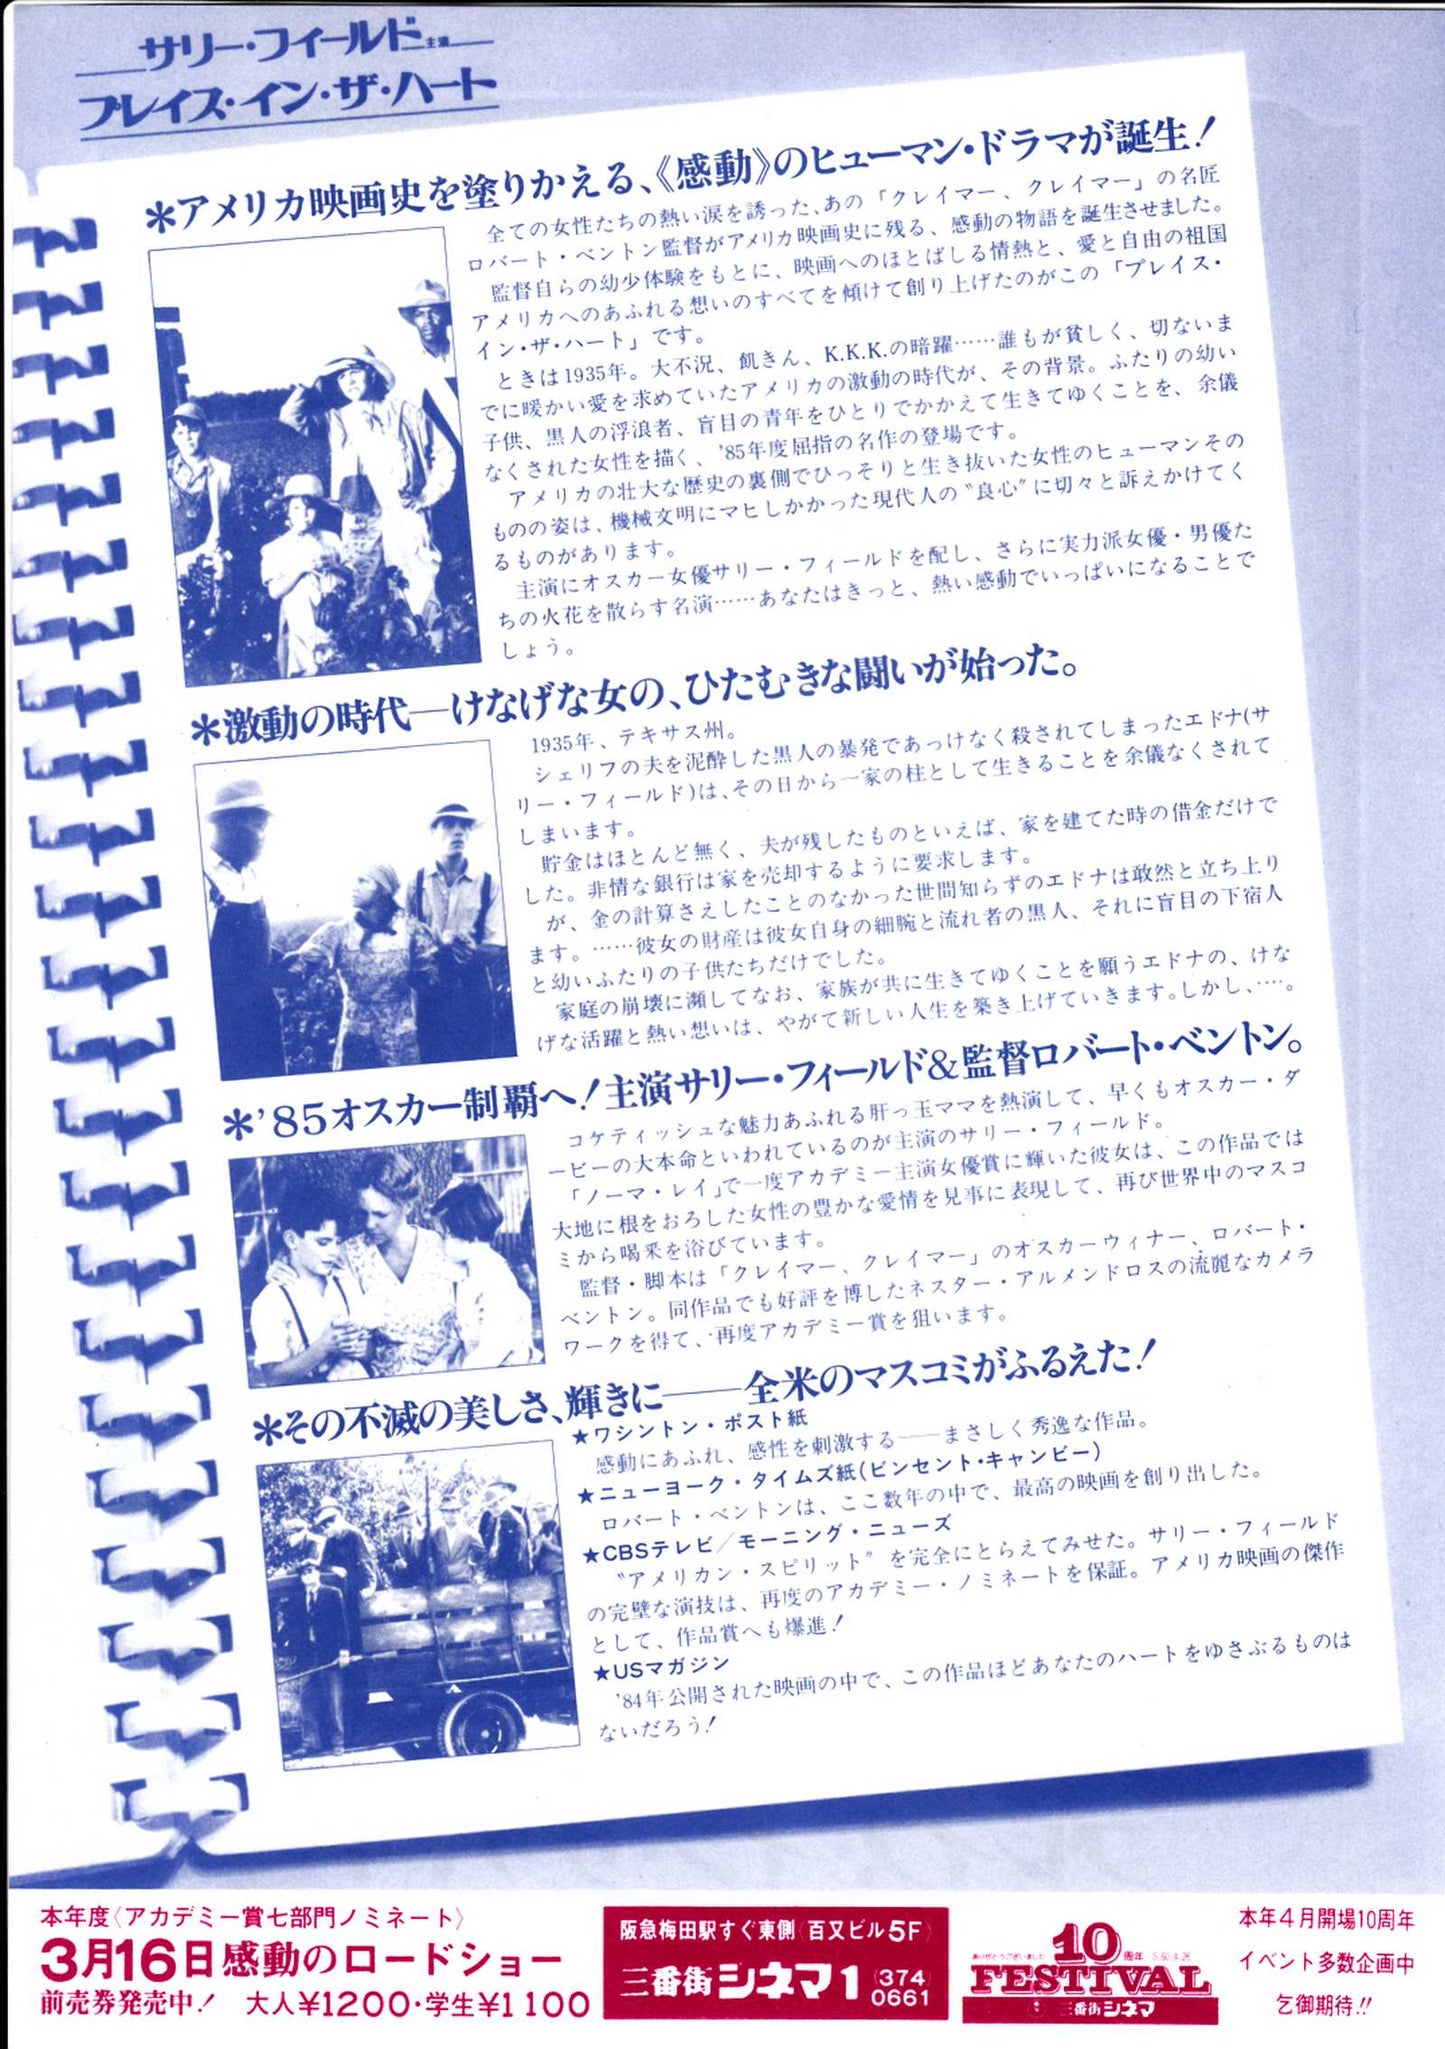 サリー・フィールド主演
プレイス・イン・ザ・ハート
＊アメリカ映画史を塗りかえる、《感動》のヒューマン・ドラマが誕生！
全ての女性たちの熱い涙を誘った、あの「クレイマー、クレイマー」の名匠
ロバート・ベントン監督がアメリカ映画史に残る、感動の物語を誕生させました。
監督自らの幼少体験をもとに、映画へのほとばしる情熱と、愛と自由の祖国
アメリカへのあふれる想いのすべてを傾けて創り上げたのがこの「プレイス・
イン・ザ・ハート」です。
ときは1935年。大不況、飢きん、K.K.K.の暗躍……誰もが貧しく、切ないま
でに暖かい愛を求めていたアメリカの激動の時代が、その背景。ふたりの幼い
子供、黒人の浮浪者、盲目の青年をひとりでかかえて生きてゆくことを、余儀
なくされた女性を描く、'85年度屈指の名作の登場です。
アメリカの壮大な歴史の裏側でひっそりと生き抜いた女性のヒューマンその
ものの姿は、機械文明にマヒしかかった現代人の〝良心〟に切々と訴えかけてく
るものがあります。
主演にオスカー女優サリー・フィールドを配し、さらに実力派女優・男優た
ちの火花を散らす名演……あなたはきっと、熱い感動でいっぱいになることで
しょう。
＊激動の時代―けなげな女の、ひたむきな闘いが始った。
1935年、テキサス州。
シェリフの夫を泥酔した黒人の暴発であっけなく殺されてしまったエドナ(サ
リー・フィールド)は、その日から一家の柱として生きることを余儀なくされて
しまいます。
貯金はほとんど無く、夫が残したものといえば、家を建てた時の借金だけで
した。非情な銀行は家を売却するように要求します。
が、金の計算さえしたことのなかった世間知らずのエドナは敢然と立ち上り
ます。……彼女の財産は彼女自身の細腕と流れ者の黒人、それに盲目の下宿人
と幼いふたりの子供たちだけでした。
家庭の崩壊に瀕してなお、家族が共に生きてゆくことを願うエドナの、けな
げな活躍と熱い想いは、やがて新しい人生を築き上げていきます。しかし、‥‥。
＊'85オスカー制覇へ！主演サリー・フィールド&監督ロバート・ベントン。
コケティッシュな魅力あふれる肝っ玉ママを熱演して、早くもオスカー・ダ
ービーの大本命といわれているのが主演のサリー・フィールド。
「ノーマ・レイ」で一度アカデミー主演女優賞に輝いた彼女は、この作品では
大地に根をおろした女性の豊かな愛情を見事に表現して、再び世界中のマスコ
ミから喝采を浴びています。
監督・脚本は「クレイマー、クレイマー」のオスカーウィナー、ロバート・
ベントン。同作品でも好評を博したネスター・アルメンドロスの流麗なカメラ
ワークを得て、再度アカデミー賞を狙います。
＊その不滅の美しさ、輝きに――全米のマスコミがふるえた！
★ワシントン・ポスト紙
感動にあふれ、感性を刺激する――まさしく秀逸な作品。
★ニューヨーク・タイムズ紙(ビンセント・キャンビー)
ロバート・ベントンは、ここ数年の中で、最高の映画を創り出した。
★CBSテレビ／モーニング・ニューズ
〝アメリカン・スピリット〟を完全にとらえてみせた。サリー・フィールド
の完璧な演技は、再度のアカデミー・ノミネートを保証。アメリカ映画の傑作
として、作品賞へも爆進！
★USマガジン
'84年公開された映画の中で、この作品ほどあなたのハートをゆさぶるものは
ないだろう！
本年度〈アカデミー賞七部門ノミネート〉
3月16日感動のロードショー
前売券発売中！ 大人¥1200・学生¥1100
阪急梅田駅すぐ東側〈百又ビル5F〉
三番街シネマ1 (374)0661
ありがとうございました 10周年
FESTIVAL
三番街シネマ
本年4月開場10周年
イベント多数企画中
乞御期待!!